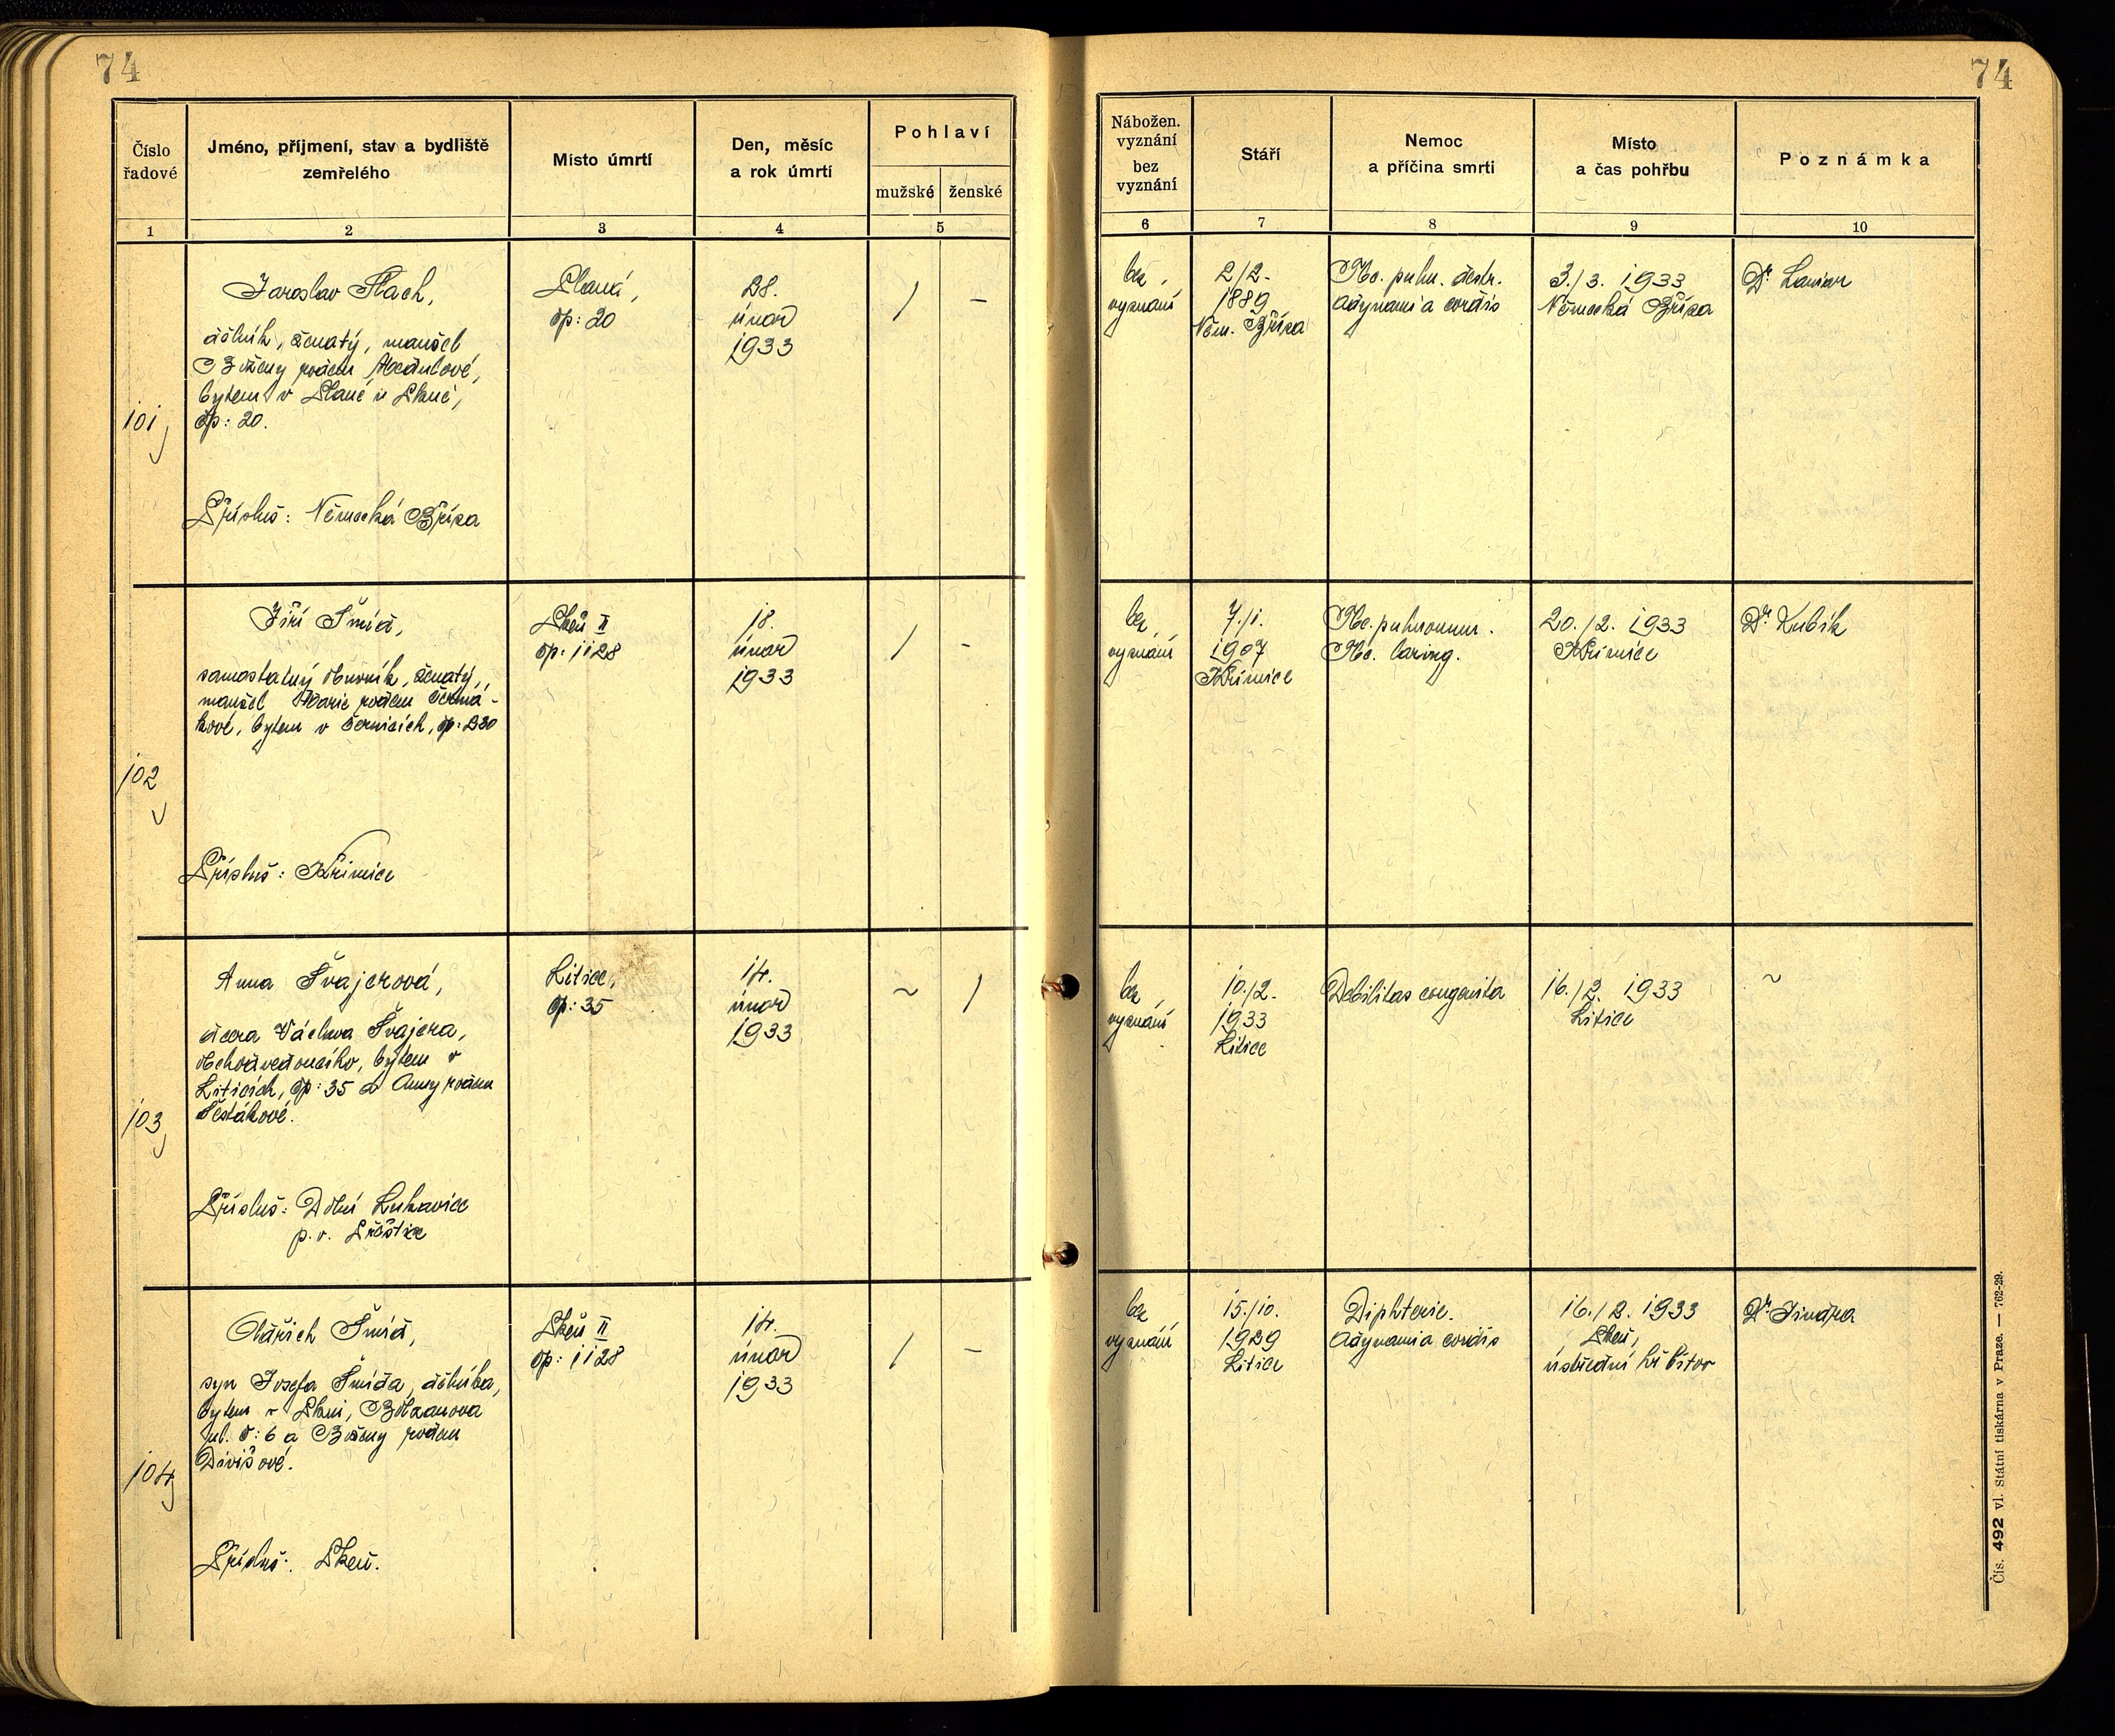 74
74
Číslo
řadové
Jméno, příjmení, stav a bydliště
zemřelého
Místo úmrtí
Den, měsíc
a rok úmrtí
Pohlaví
mužské
ženské
Nábožen.
vyznání
bez
vyznání
Stáří
Nemoc
a příčina smrti
Místo
a čas pohřbu
Poznámka
1
2
3
4
5
6
7
8
9
10
101
Jaroslav Flach,
dělník, ženatý, manžel
Boženy rodem
bytem v Plané u Plzně,
čp: 20.
Přísluš: Německá Bříza
Planá,
čp: 20
28.
únor
1933
/
-
bez
vyznání
2/2.
1889
Něm. Bříza
Tbc. pulm. destr.
Adynamia cordis
3./3. 1933
Německá Bříza
Dr.
102
Jiří Šmíd,
samostatný obuvník, ženatý,
manžel Marie rodem Čermá-
kové, bytem v Černicích, čp: 230
Přísluš: Křimice
Plzeň II
čp: 1128
18.
únor
1933
/
-
bez
vyznání
7./1.
1907
Křimice
Tbc. pulmonum.
Tbc. laring.
20./2. 1933
Křimice
Dr. Kubík
103
Anna Švajerová,
dcera Václava Švajera,
obchodvedoucího, bytem v
Liticích, čp: 35 a Anny rodem
Šestákové.
Přísluš: Dolní Lukavice
p. v. Přeštice
Litice,
čp: 35
14.
únor
1933
~
/
bez
vyznání
10./2.
1933
Litice
Debilitas congenita
16./2. 1933
Litice
~
104
Oldřich Šmíd,
syn Josefa Šmída, dělníka,
bytem v Plzni, Bolzanova
ul. č: 6 a Boženy rodem
Divišové.
Přísluš: Plzeň.
Plzeň II
čp: 1128
14.
únor
1933
/
-
bez
vyznání
15./10.
1929
Litice
Diphterie.
Adynamia cordis
16./2. 1933
Plzeň,
ústřední hřbitov
Dr. Jindra
Čís. 492 vl. Státní tiskárna v Praze. — 762-29.